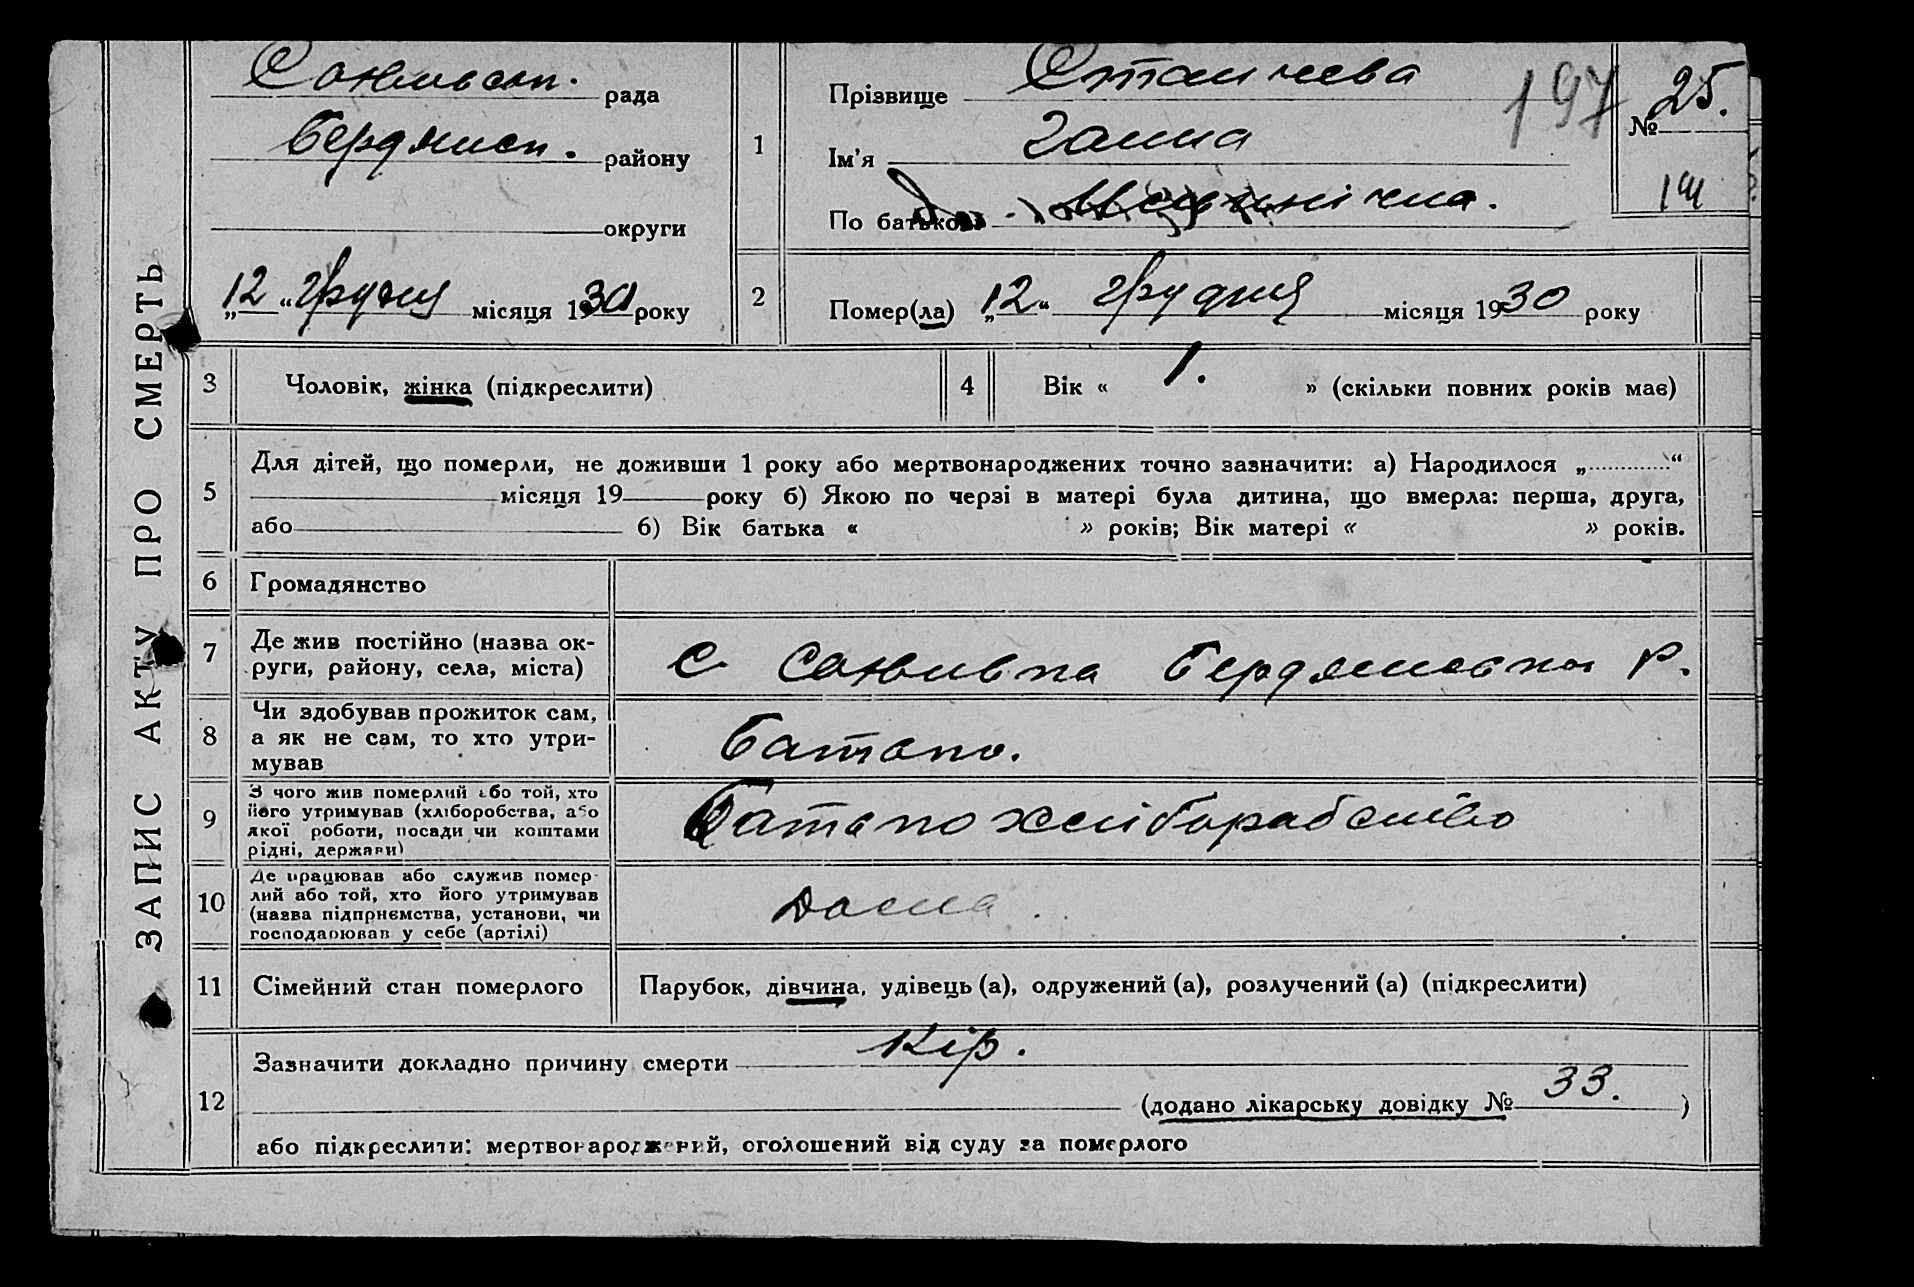 ЗАПИС АКТУ ПРО СМЕРТЬ
рада
району
округи
„12“ грудня місяця 1930 року
1
Прізвище
Ім'я Ганна
По батькові
197
№ 25.
2
Помер(ла) „12“ грудня місяця 1930 року
3 Чоловік, жінка (підкреслити)
4 Вік « 1. » (скільки повних років має)
5
Для дітей, що померли, не доживши 1 року або мертвонароджених точно зазначити: а) Народилося „..............“
місяця 19 року б) Якою по черзі в матері була дитина, що вмерла: перша, друга,
або 6) Вік батька « » років; Вік матері « » років.
6 Громадянство
7
Де жив постійно (назва ок-
руги, району, села, міста)
с. р.
8
Чи здобував прожиток сам,
а як не сам, то хто утри-
мував
Батько.
9
З чого жив померлий або той, хто
його утримував (хліборобства, або
якої роботи, посади чи коштами
рідні, держави)
Батько
10
Де працював або служив помер-
лий або той, хто його утримував
(назва підприємства, установи, чи
господарював у себе (артілі)
Дома.
11 Сімейний стан померлого
Парубок, дівчина, удівець (а), одружений (а), розлучений (а) (підкреслити)
12
Зазначити докладно причину смерти Кір.
(додано лікарську довідку № 33. )
або підкреслити: мертвонароджений, оголошений від суду за померлого